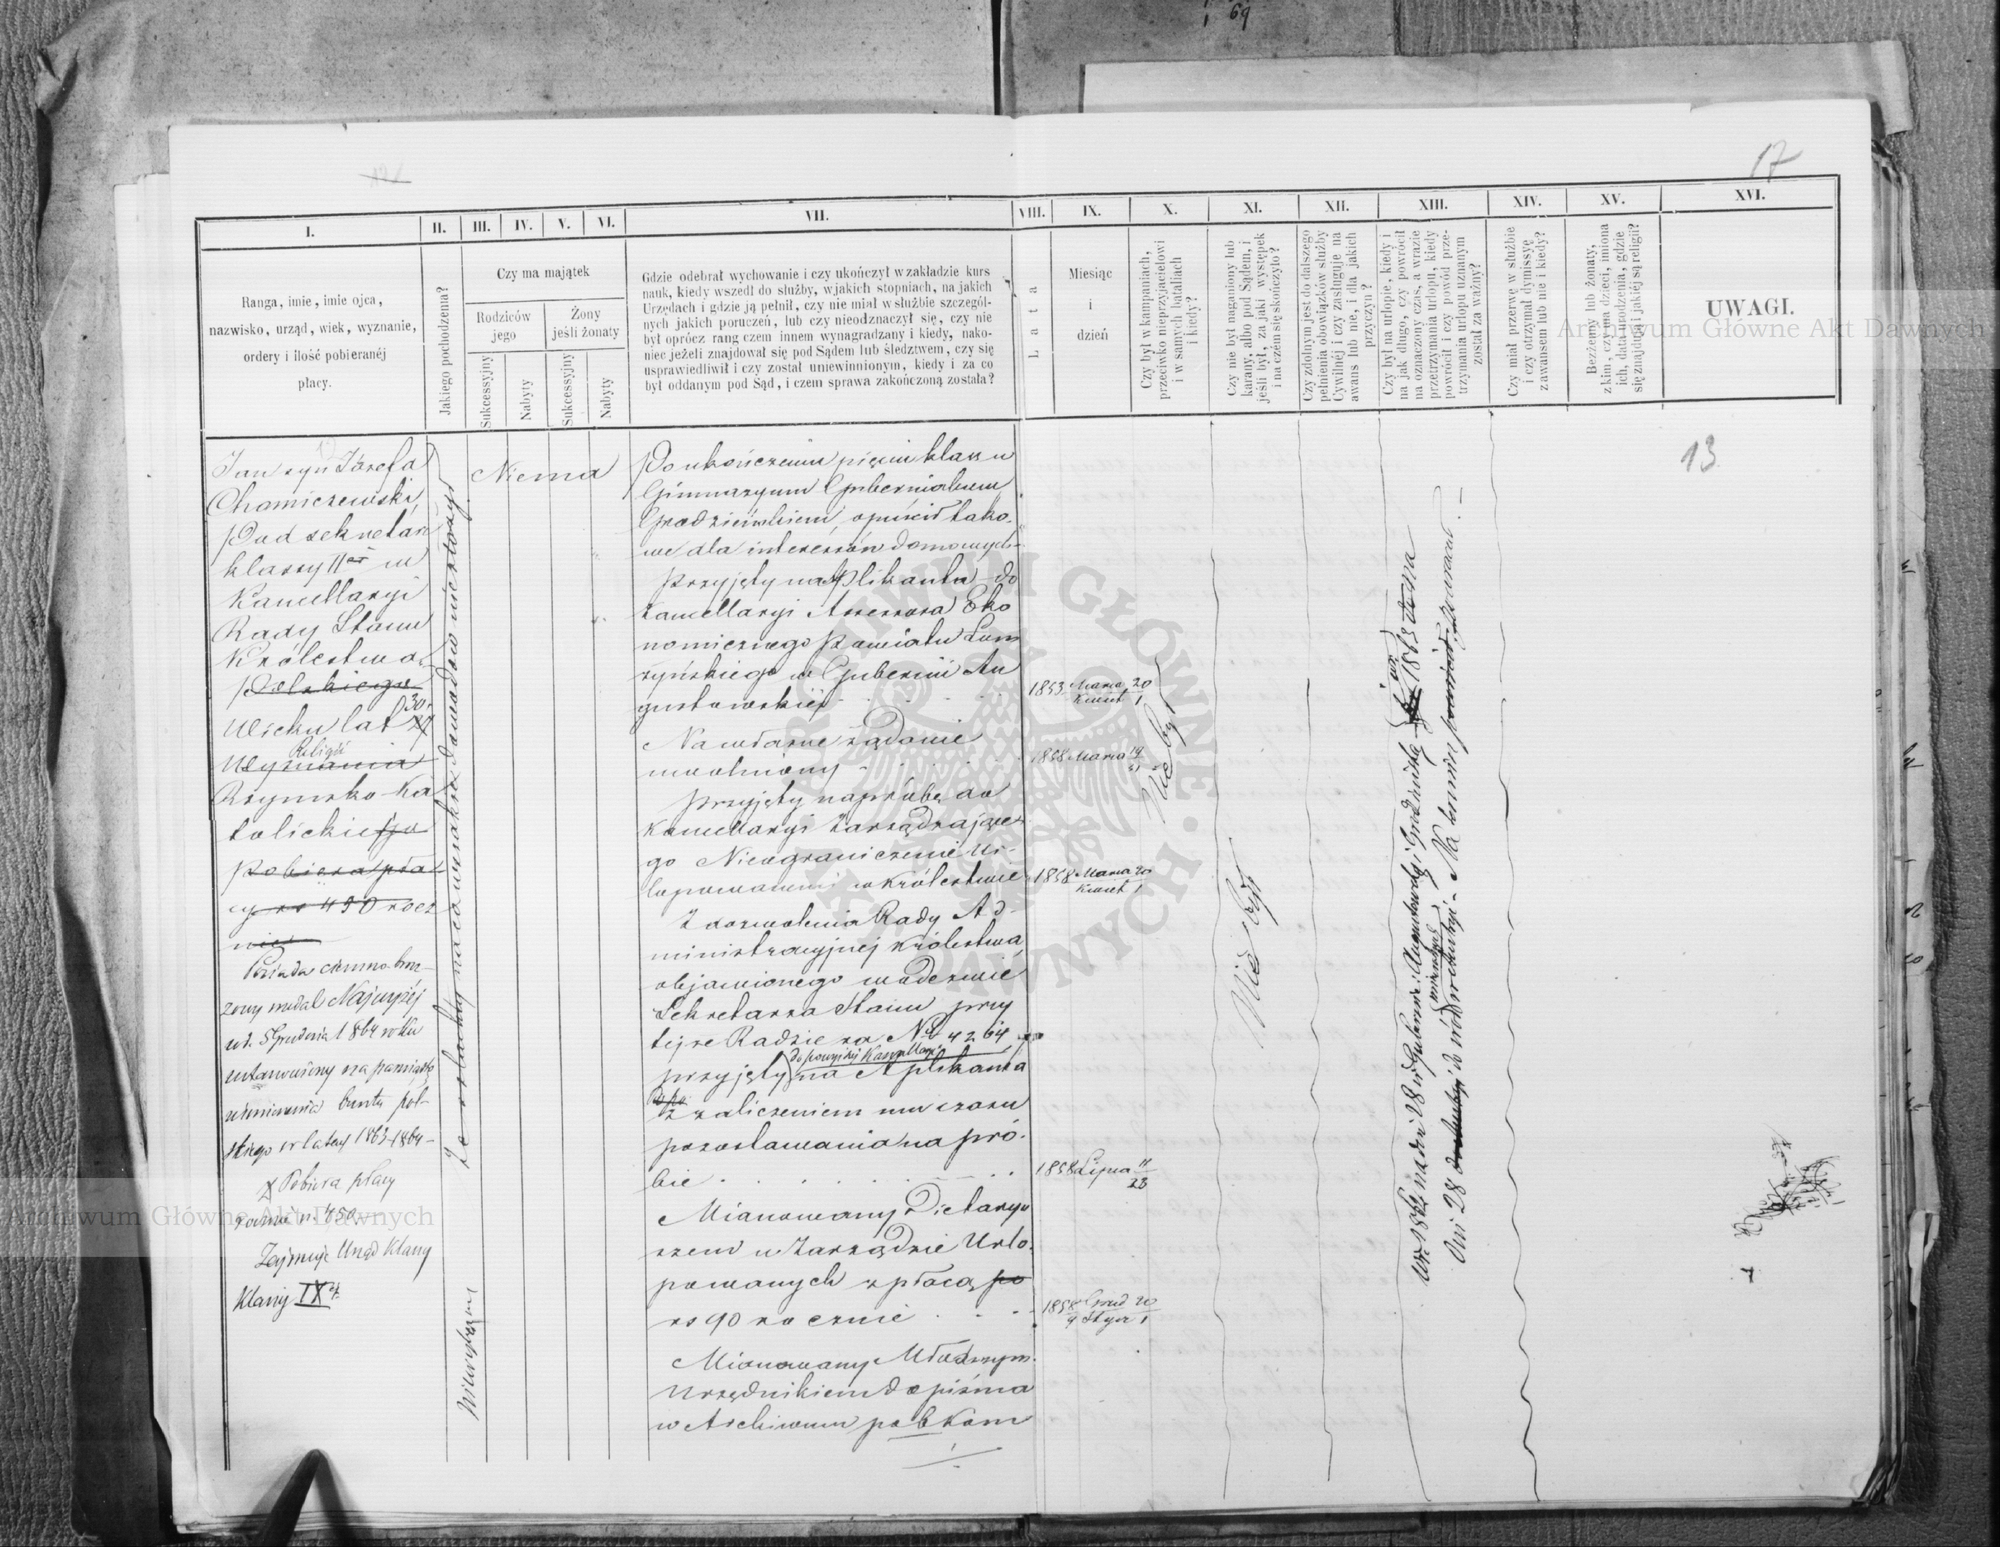 69
17
I.
II.
III.
IV.
V.
VI.
VII.
VIII.
IX.
X.
XI.
XII.
XIII.
XIV.
XV.
XVI.
Ranga, imie, imie ojca,
nazwisko, urząd, wiek, wyznanie,
ordery i ilość pobieranéj
płacy.
Jakiego pochodzenia?
Czy ma majątek
Rodziców
jego
Żony
jeśli żonaty
Sukcessyjny
Nabyty
Sukcessyjny
Nabyty
Gdzie odebrał wychowanie i czy ukończył w zakładzie kurs
nauk, kiedy wszedł do służby, w jakich stopniach, na jakich
Urzędach i gdzie ją pełnił, czy nie miał w służbie szczegól-
nych jakich poruczeń, lub czy nieodznaczył się, czy nie
był oprócz rang czem innem wynagradzany i kiedy, nako-
niec jeżeli znajdował się pod Sądem lub śledztwem, czy się
usprawiedliwił i czy został uniewinnionym, kiedy i za co
był oddanym pod Sąd, i czem sprawa zakończoną została?
Lata
Miesiąc
i
dzień
Czy był w kampaniach,
przeciwko nieprzyjacielowi
i w samych bataliach
i kiedy?
Czy nie był naganiony lub
karany, albo pod Sądem, i
jeśli był, za jaki występek
i na czém się skończyło?
Czy zdolnym jest do dalszego
pełnienia obowiązków służby
Cywilnéj i czy zasługuje na
awans lub nie, i dla jakich
przyczyn?
Czy był na urlopie, kiedy i
na jak długo, czy powrócił
na oznaczony czas, a w razie
przetrzymania urlopu, kiedy
powrócił i czy powód prze-
trzymania urlopu uznanym
został za ważny?
Czy miał przerwę w służbie
i czy otrzymał dymissyę
z awansem lub nie i kiedy?
Bezżenny lub żonaty,
z kim, czy ma dzieci, imiona
ich, data urodzenia, gdzie
się znajdują i jakiéj są religii?
UWAGI.
Jan syn Józefa
Chomiczewski,
Podsekretarz
klassy IIéj w
Kancellaryi
Rady Stanu
Królestwa
Polskiego
Wieku lat 30
Religii
Wyznania
Rzymsko Ka
tolickiego
Pobiera pła-
cy rs 450 rocz
nie
Posiada ciemno bron-
zowy medal Najwyżéj
ust. 5 Grudnia 1864 roku
ustanowiony na pamiątkę
uśmierzenia buntu pol-
skiego w latach 1863-1864-
Pobiera płacy
rocznie rs. 450
Zajmuje Urząd Klassy
Klassy IX éj.
Ze szlachty na co wszakże dowodów nie złożył
Niewylegitymowany
Niema
Po ukończeniu pięciu klass w
Gimnazyum Gubernialnem
Grodzieńskiem, opuścił tako-
we dla interessów domowych-
Przyjęty na Aplikanta do
Kancellaryi Assessora Eko
nomicznego Powiatu Łom
żyńskiego w Gubernii Au
gustowskiej
1853 Marca 20
Kwiet 1
Na własne żądanie
uwolniony
1858 Marca 19
31
Przyjęty na próbę do
Kancellaryi Zarządzające-
go Nieograniczenie Ur-
lopowanemi w Królestwie
1858 Marca 20
Kwiet 1
Z dozwolenia Rady Ad-
ministracyjnéj Królestwa
objawionego w odezwie
Sekretarza Stanu przy
tejże Radzie za No 4264
do powyższej Kancellaryi
przyjęty na Aplikanta
z zaliczeniem mu czasu
pozostawania na pró-
bie
1858 Lipca 11
23
Mianowany Dietaryu
szem w Zarządzie Urlo-
powanych z płacą po
rs 90 rocznie
1858 Grud 20
9 Stycz 1
Mianowany Młodszym
Urzędnikiem do pisma
w Archiwum pob Kom
Nie był
Nie był
13
ARCHIWUM GŁÓWNE AKT DAWNYCH
Archiwum Główne Akt Dawnych
Archiwum Główne Akt Dawnych